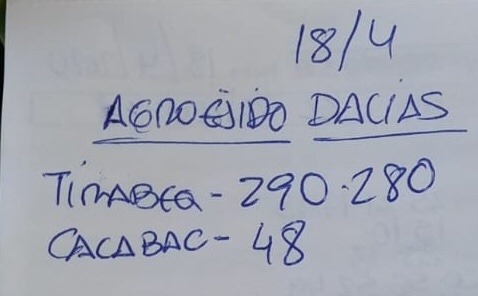 18/4
AGROEJIDO DACIAS
TIRABEQ - 290.280
CACABAC - 48